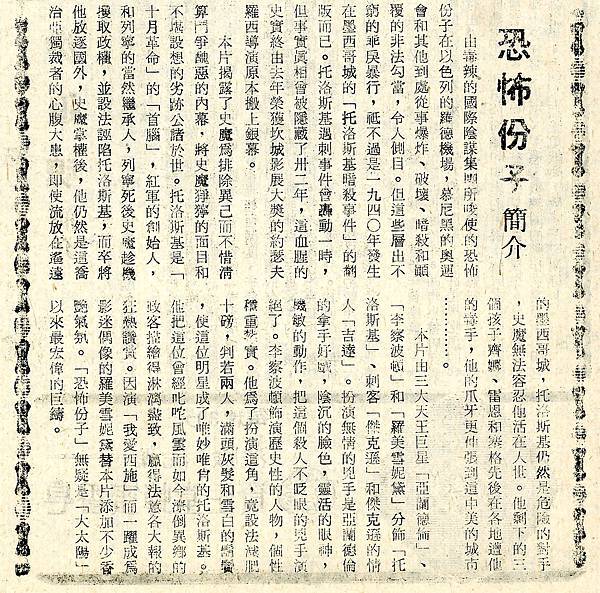 恐怖份子簡介
由毒辣的國際陰謀集團所唆使的恐怖
份子在以色列的羅德機場，慕尼黑的奧運
會和其他到處從事爆炸、破壞、暗殺和顛
覆的非法勾當，令人側目。但這些層出不
窮的乖戾暴行，祇不過是一九四○年發生
在墨西哥城的「托洛斯基暗殺事件」的翻
版而已。托洛斯基遇刺事件曾轟動一時，
但事實眞相曾被隱藏了卅二年，這血腥的
史實終由去年榮獲坎城影展大獎的約瑟夫
羅西導演原本搬上銀幕。
本片揭露了史魔爲排除異己而不惜淸
算鬥爭醜惡的內幕，將史魔猙獰的面目和
不堪設想的劣跡公諸於世。托洛斯基是「
十月革命」的「首腦」，紅軍的創始人，
和列寧的當然繼承人，列寧死後史魔趁機
攫取政權，並設法誣陷托洛斯基，而卒將
他放逐國外，史魔掌權後，他仍然是這喬
治亞獨裁者的心腹大患，即使流放在遙遠
的墨西哥城，托洛斯基仍然是危險的對手
，史魔無法容忍他活在人世。他剩下的三
個孩子齊娜、雷恩和塞格先後在各地遭他
的毒手，他的爪牙更伸張到這中美的城市
…………。
本片由三大天王巨星「亞蘭德倫」、
「李察波頓」和「羅美雪妮黛」分飾「托
洛斯基」、刺客「傑克遜」和傑克遜的情
人「吉達」。扮演無情的兇手是亞蘭德倫
的拿手好戲，陰沉的臉色，靈活的眼神，
機敏的動作，把這個殺人不眨眼的兇手演
絕了。李察波頓飾演歷史性的人物，個性
穩重紮實。他爲了扮演這角，竟設法減肥
十磅，判若兩人，滿頭灰髮和雪白的鬍鬚
，使這位明星成了唯妙唯肖的托洛斯基。
他把這位曾經叱咤風雲而如今潦倒異鄉的
政客描繪得淋漓盡致，贏得法意各大報的
狂熱讚賞。因演「我愛西施」而一躍成爲
影迷偶像的羅美雪妮黛替本片添加不少香
艷氣氛。「恐怖份子」無疑是「大太陽」
以來最宏偉的巨鑄。